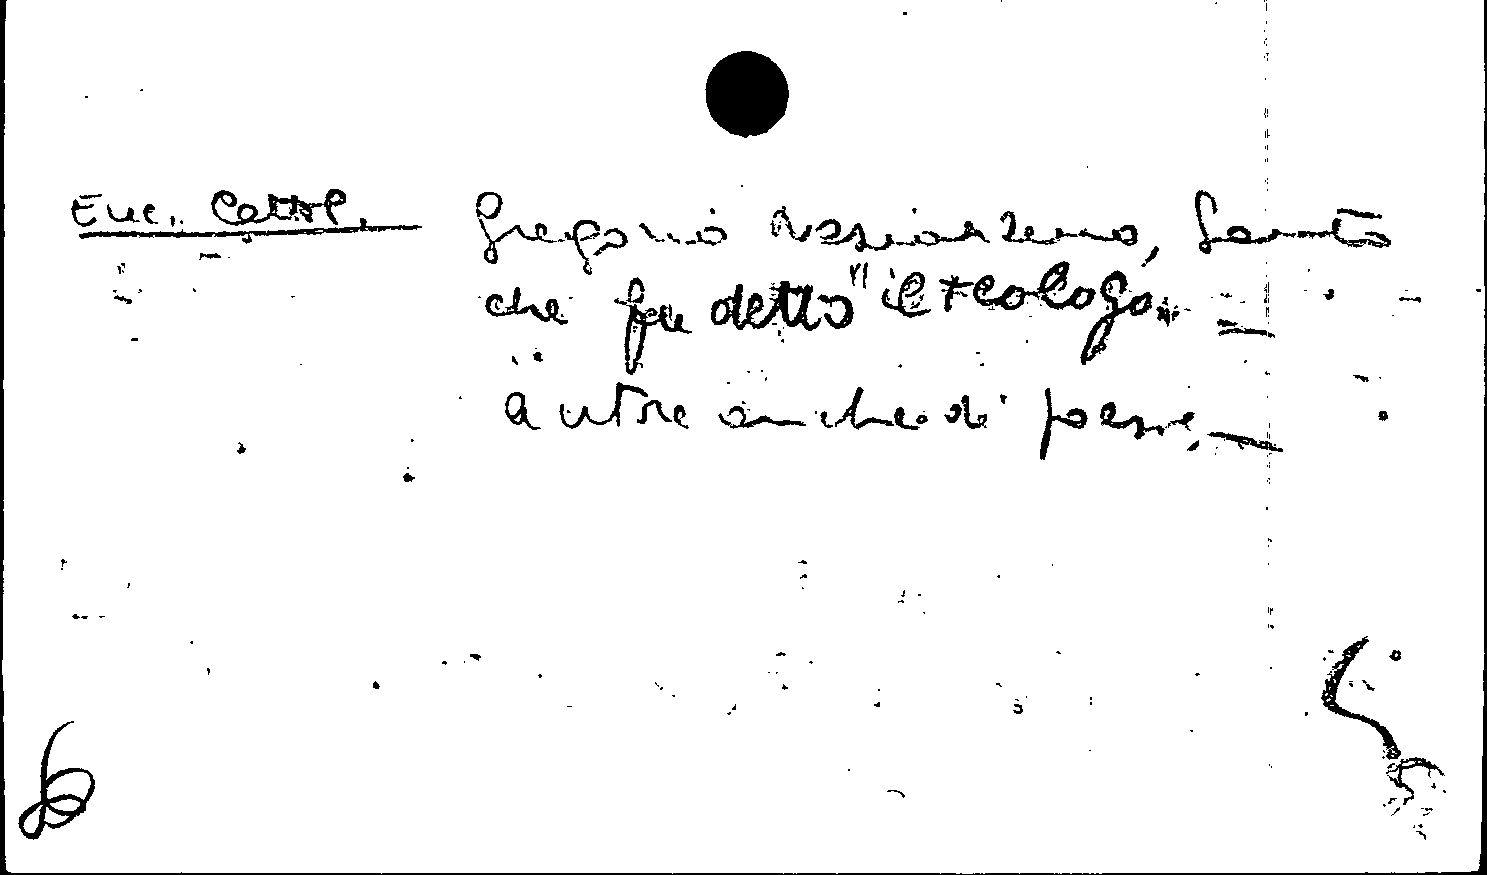 Enc. Cattol. Gregorio Nazianzeno, Santo
che fu detto "il teologo" =
autore anche di poesie. —